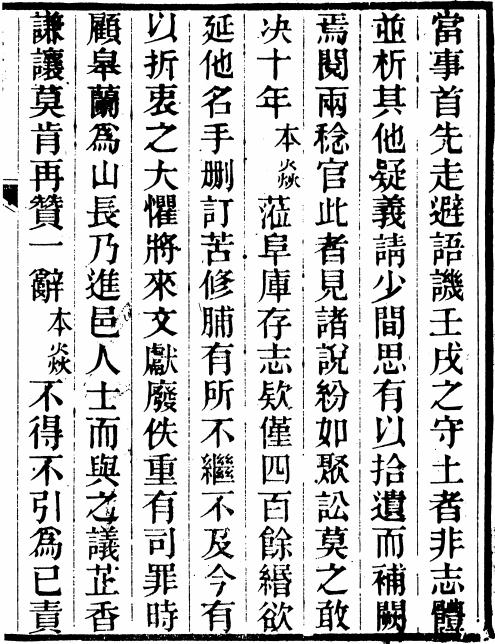 當事首先走避語譏壬戌之守土者非志體
並析其他疑義請少間思有以拾遺而補闕
焉閱兩稔官此者見諸說紛如聚訟莫之敢
決十年本焱蒞阜庫存志欵僅四百餘緡欲
延他名手删訂苦修脯有所不繼不及今有
以折衷之大懼將來文獻廢佚重有司罪時
顧皋蘭為山長乃進邑人士而與之議茈香
謙讓莫肯再贊一辭本焱不得不引為已責